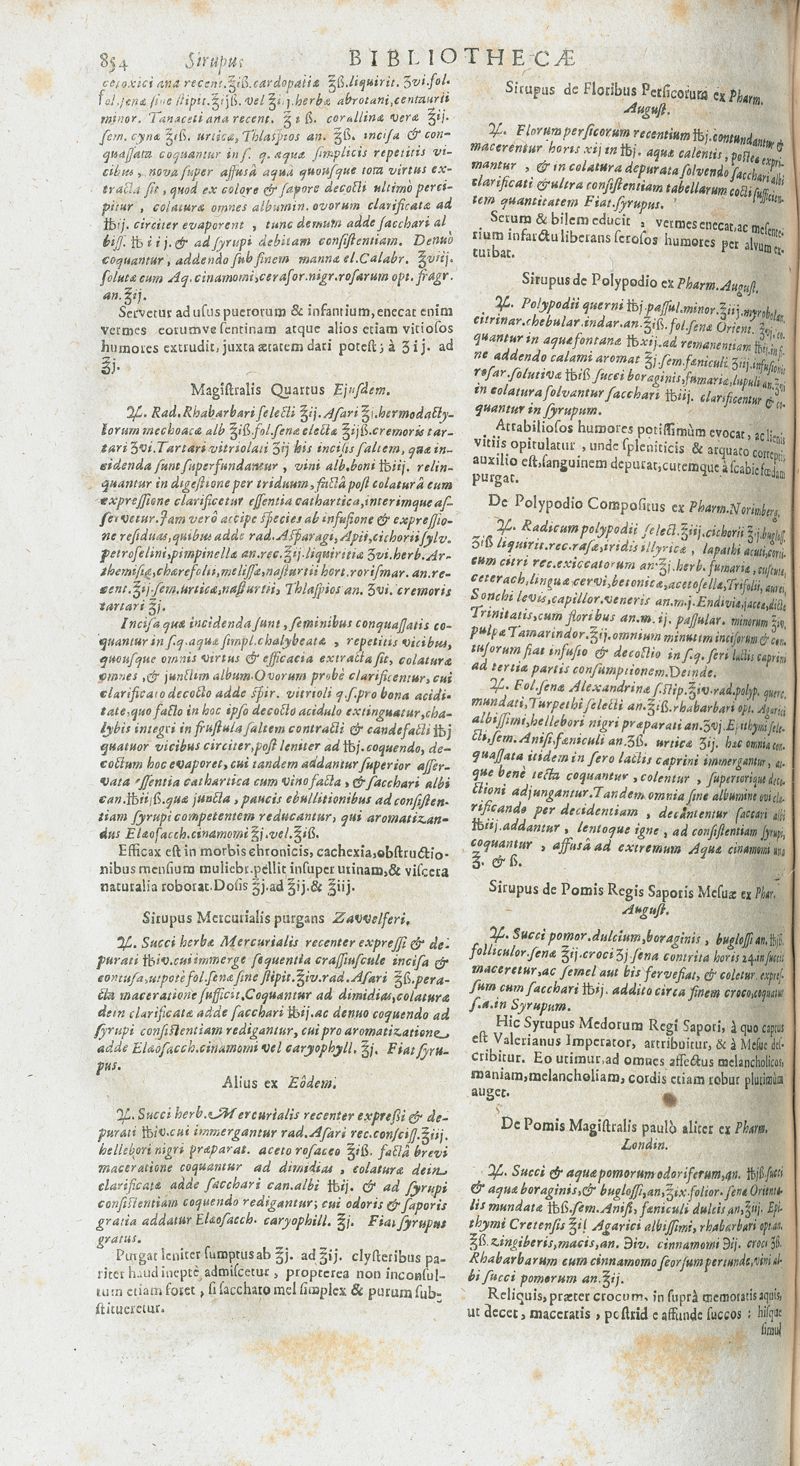 854 Sirupus BIBLIOTHECÆ
cetoxici ana recent.℥iß.cardopatiæ ℥ß.liquirit. ʒvi.fol.
fol.senæ sine stipit.℥ijß. vel ℥iij.herbæ abrotani,centaurii
minor. Tanaceti ana recent. ℥ i ß. corallinæ veræ ℥ij.
sem. cynæ ℥iß. urticæ, Thlaspios an. ℥ß. incisa & con-
quassata coquantur in s. q. aquæ simplicis repetitis vi-
cibus, nova super affusâ aquâ quousque tota virtus ex-
tracta sit, quod ex colore & sapore decocti ultimò perci-
pitur , colaturæ omnes albumin. ovorum clarificatæ ad
℔ij. circiter evaporent , tunc demum adde sacchari al
biss. ℔ i i j. & ad syrupi debitam consistentiam. Denuò
coquantur, addendo sub finem mannæ el.Calabr. ℥viij.
solutæ cum Aq.cinamomi,cerasor.nigr.rosarum opt. fragr.
an.℥ij.
Servetur ad usus puerorum & infantium,enecat enim
vermes eorumve sentinam atque alios etiam vitiosos
humores extrudit, juxta ætatem dari potest; à ʒ ij. ad
℥j.
Magistralis Quartus Ejusdem.
♃. Rad. Rhabarbari selecti ℥ij. Asari ℥j.hermodacty-
lorum mechoacæ alb ℥iß.fol.senæ electæ ℥ijß.cremoris tar-
tari ʒvi.Tartari vitriolati ʒij his incisis saltem, quæ in-
cidenda sunt superfundantur , vini alb.boni ℔iij. relin-
quantur in digestione per triduum, factâ post colaturâ cum
expressione clarificetur essentia cathartica,interimque as-
servetur.Jam verò accipe species ab infusione & expressio-
ne residuas,quibus adde rad. Asparagi, Apii,cichorii sylv.
petroselini,pimpinellæ an.rec.℥ij.liquiritiæ ʒvi.herb.Ar-
themisiæ,charefolii,melissæ,nasturtii hort.rorismar. an.re-
cent.℥ij.sem.urticæ,nasturtii, Thlaspios an. ʒvi. cremoris
tartari ℥j.
Incisa quæ incidenda sunt , seminibus conquassatis co-
quantur in s.q.aquæ simpl.chalybeatæ , repetitis vicibus,
quousque omnis virtus & efficacia extracta sit, colaturæ
omnes ,& junctim album.Ovorum probè clarificentur, cui
clarificato decocto adde spir. vitrioli q.s.pro bona acidi-
tate,quo facto in hoc ipso decocto acidulo extinguatur,cha-
lybis integri in frustula saltem contracti & candefacti ℔j
quatuor vicibus circiter,post leniter ad ℔j.coquendo, de-
coctum hoc evaporet, cui tandem addantur superior asser-
vata essentia cathartica cum vino facta , & sacchari albi
can.℔iijß.qua juncta , paucis ebullitionibus ad consisten-
tiam syrupi competentem reducantur, qui aromatizan-
dus Elæosacch.cinamomi ℥j.vel.℥iß.
Efficax est in morbis chronicis, cachexia,obstructio-
nibus mensium muliebr.pellit insuper urinam,& viscera
naturalia roborat. Dosis ℥j.ad ℥ij.& ℥iij.
Sirupus Mercurialis purgans Zavvelferi.
♃. Succi herbæ Mercurialis recenter expressi & de-
purati ℔iv.cui immerge sequentia crassiuscule incisa &
contusa,utpotè fol.senæ sine stipit.℥iv.rad. Asari ℥ß.pera-
cta maceratione sufficit.Coquantur ad dimidias,colaturæ
dein clarificatæ adde sacchari ℔ij.ac denuo coquendo ad
syrupi consistentiam redigantur, cui pro aromatizatione
adde Elæosacch.cinamomi vel caryophyll. ℥j. Fiat syru-
pus.
Alius ex Eôdem.
♃. Succi herb. Mercurialis recenter expreßi & de-
purati ℔iv.cui immergantur rad. Asari rec.consciss.℥iij.
hellebori nigri præparat. aceto rosaceo ℥iß. factâ brevi
maceratione coquantur ad dimidias , colaturæ dein
clarificatæ adde sacchari can.albi ℔ij. & ad syrupi
consistentiam coquendo redigantur; cui odoris & saporis
gratia addatur Elæosacch. caryophill. ℥j. Fiat syrupus
gratus.
Purgat leniter sumptus ab ℥j. ad ℥ij. clysteribus pa-
riter haud ineptè admiscetur , propterea non inconsul-
tum etiam foret , si saccharo mel simplex & purum sub-
stitueretur.
Sirupus de Floribus Persicorum ex Pharm.
August.
♃. Florum persicorum recentium ℔j.contundantur &
macerentur horis xij in ℔j. aquæ calentis, postea expri-
mantur , & in colatura depurata solvendo sacchari albi
clarificati & ultra consistentiam tabellarum cocti sufficien-
tem quantitatem Fiat.syrupus.
Serum & bilem educit , vermes enecat,ac mesente-
rium infarctu liberans serosos humores per alvum ex-
turbat.
Sirupus de Polypodio ex Pharm.August.
♃. Polypodii querni ℔j.passul.minor.℥iij.myrobolan.
citrinar.chebular.indar.an.℥iß.fol.senæ Orient. co-
quantur in aquæ fontanæ ℔xij.ad remanentiam in fi-
ne addendo calami aromat ℥j.sem.fœniculi ʒiij.infusionis
rosar.solutivæ ℔iß succi boraginis,fumariæ,lupuli an.
in colatura solvantur sacchari ℔iij. clarificentur & co-
quantur in syrupum.
Atrabiliosos humores potissimùm evocat, ac lienis
vitiis opitulatur , unde spleniticis & arquato correptis
auxilio est,sanguinem depurat,cutemque à scabie fœdam
purgat.
De Polypodio Compositus ex Pharm.Norimberg.
♃. Radicum polypodii select.℥iij.cichorii ℥ij.bugloss.
ʒiß liquirit.rec.rasæ,iridis illyricæ , lapathi acuti,corti-
cum citri rec.exiccatorum an.℥j.herb.fumariæ, cuscutæ,
ceterach,linguæ cervi,betonicæ,acetosellæ,Trifolii, aurei,
Sonchi levis,capillor.veneris an.m.j.Endiviæ,jaceæ,dictæ
Trinitatis,cum floribus an.m.ij. passular. minorum ℥iv.
pulpæ Tamarindor.℥ij.omnium minutim incisorum & con-
tusorum fiat infusio & decoctio in s.q.seri lactis caprini
ad tertiæ partis consumptionem.Deinde.
♃. Fol.senæ Alexandrinæ s.stip.℥iv.rad.polyp. querc.
mundati,Turpethi selecti an.℥iß.rhabarbari opt. Agarici
albissimi,hellebori nigri præparati an.ʒvj.Epithymi sele-
cti,sem.Anisi.fœniculi an.℥ß. urticæ ʒij. hæc omnia con-
quassata itidem in sero lactis caprini immergantur, at-
que bene tecta coquantur , colentur , superiorique deco-
ctioni adjungantur.Tandem omnia sine albumine ovi cla-
rificando per decidentiam , decantentur saccari albi
℔iij.addantur , lentoque igne , ad consistentiam syrupi,
coquantur , affusâ ad extremum Aquæ cinamomi una
℥. & ß.
Sirupus de Pomis Regis Saporis Mesuæ ex Phar.
August.
♃. Succi pomor.dulcium,boraginis , buglossi an.℔jß.
folliculor.senæ ℥ij.croci ʒj senæ contrita horis 24.in succis
maceretur,ac semel aut bis fervefiat, & coletur. expres-
sum cum sacchari ℔ij. addito circa finem croco,coquatur
s.a.in Syrupum.
Hic Syrupus Medorum Regi Sapori, à quo captus
est Valerianus Imperator, attribuitur, & à Mesue des-
cribitur. Eo utimur,ad omnes affectus melancholicos,
maniam,melancholiam, cordis etiam robur plurimùm
auget.
De Pomis Magistralis paulò aliter ex Pharm.
Londin.
♃. Succi & aquæ pomorum odoriferum,an. ℔jß.succi
& aquæ boraginis,& buglossi,an,℥ix.folior.senæ Orienta-
lis mundatæ ℔ß.sem.Anisi, fœniculi dulcis an,ʒiij. Epi-
thymi Cretensis ℥ij Agarici albissimi, rhabarbari opt.an.
℥ß.zingiberis,macis,an. ℈iv. cinnamomi ℈ij. croci ʒß.
Rhabarbarum cum cinnamomo seorsum pertunde,vini al-
bi succi pomorum an.℥ij.
Reliquis, præter crocum, in suprà memoratis aquis,
ut decet, maceratis , postridie affunde succos ; hisque
simul